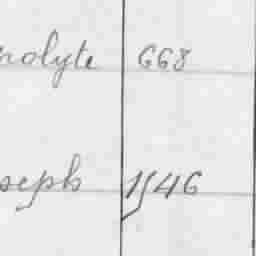 nolyte 668
seph 1546